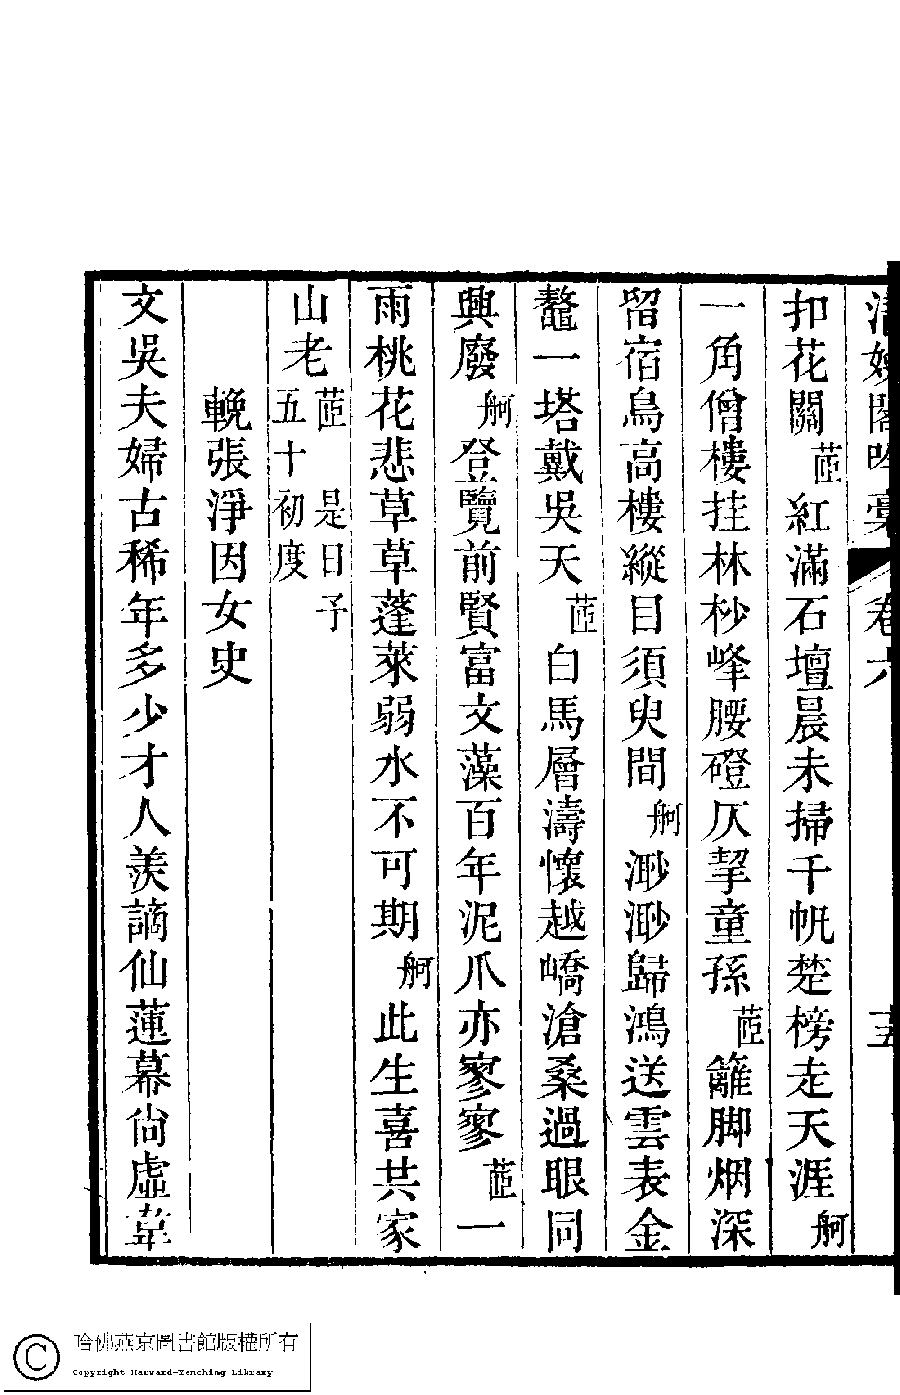 清娛閣吟藁 卷六 十五
扣花關茝紅滿石壇晨未掃千帆楚榜走天涯舸
一角僧樓挂林杪峰腰磴仄挈童孫茝籬脚烟深
留宿鳥高樓縱目須臾間舸渺渺歸鴻送雲表金
鼇一塔戴吳天茝白馬層濤懷越嶠滄桑過眼同
興廢舸登覽前賢富文藻百年泥爪亦寥寥茝一
雨桃花悲草草蓬萊弱水不可期舸此生喜共家
山老茝 是日予五十初度
輓張淨因女史
文吳夫婦古稀年多少才人羨謫仙蓮幕尙虛韋
哈佛燕京圖書館版權所有
Copyright Harvard-Yenching Library